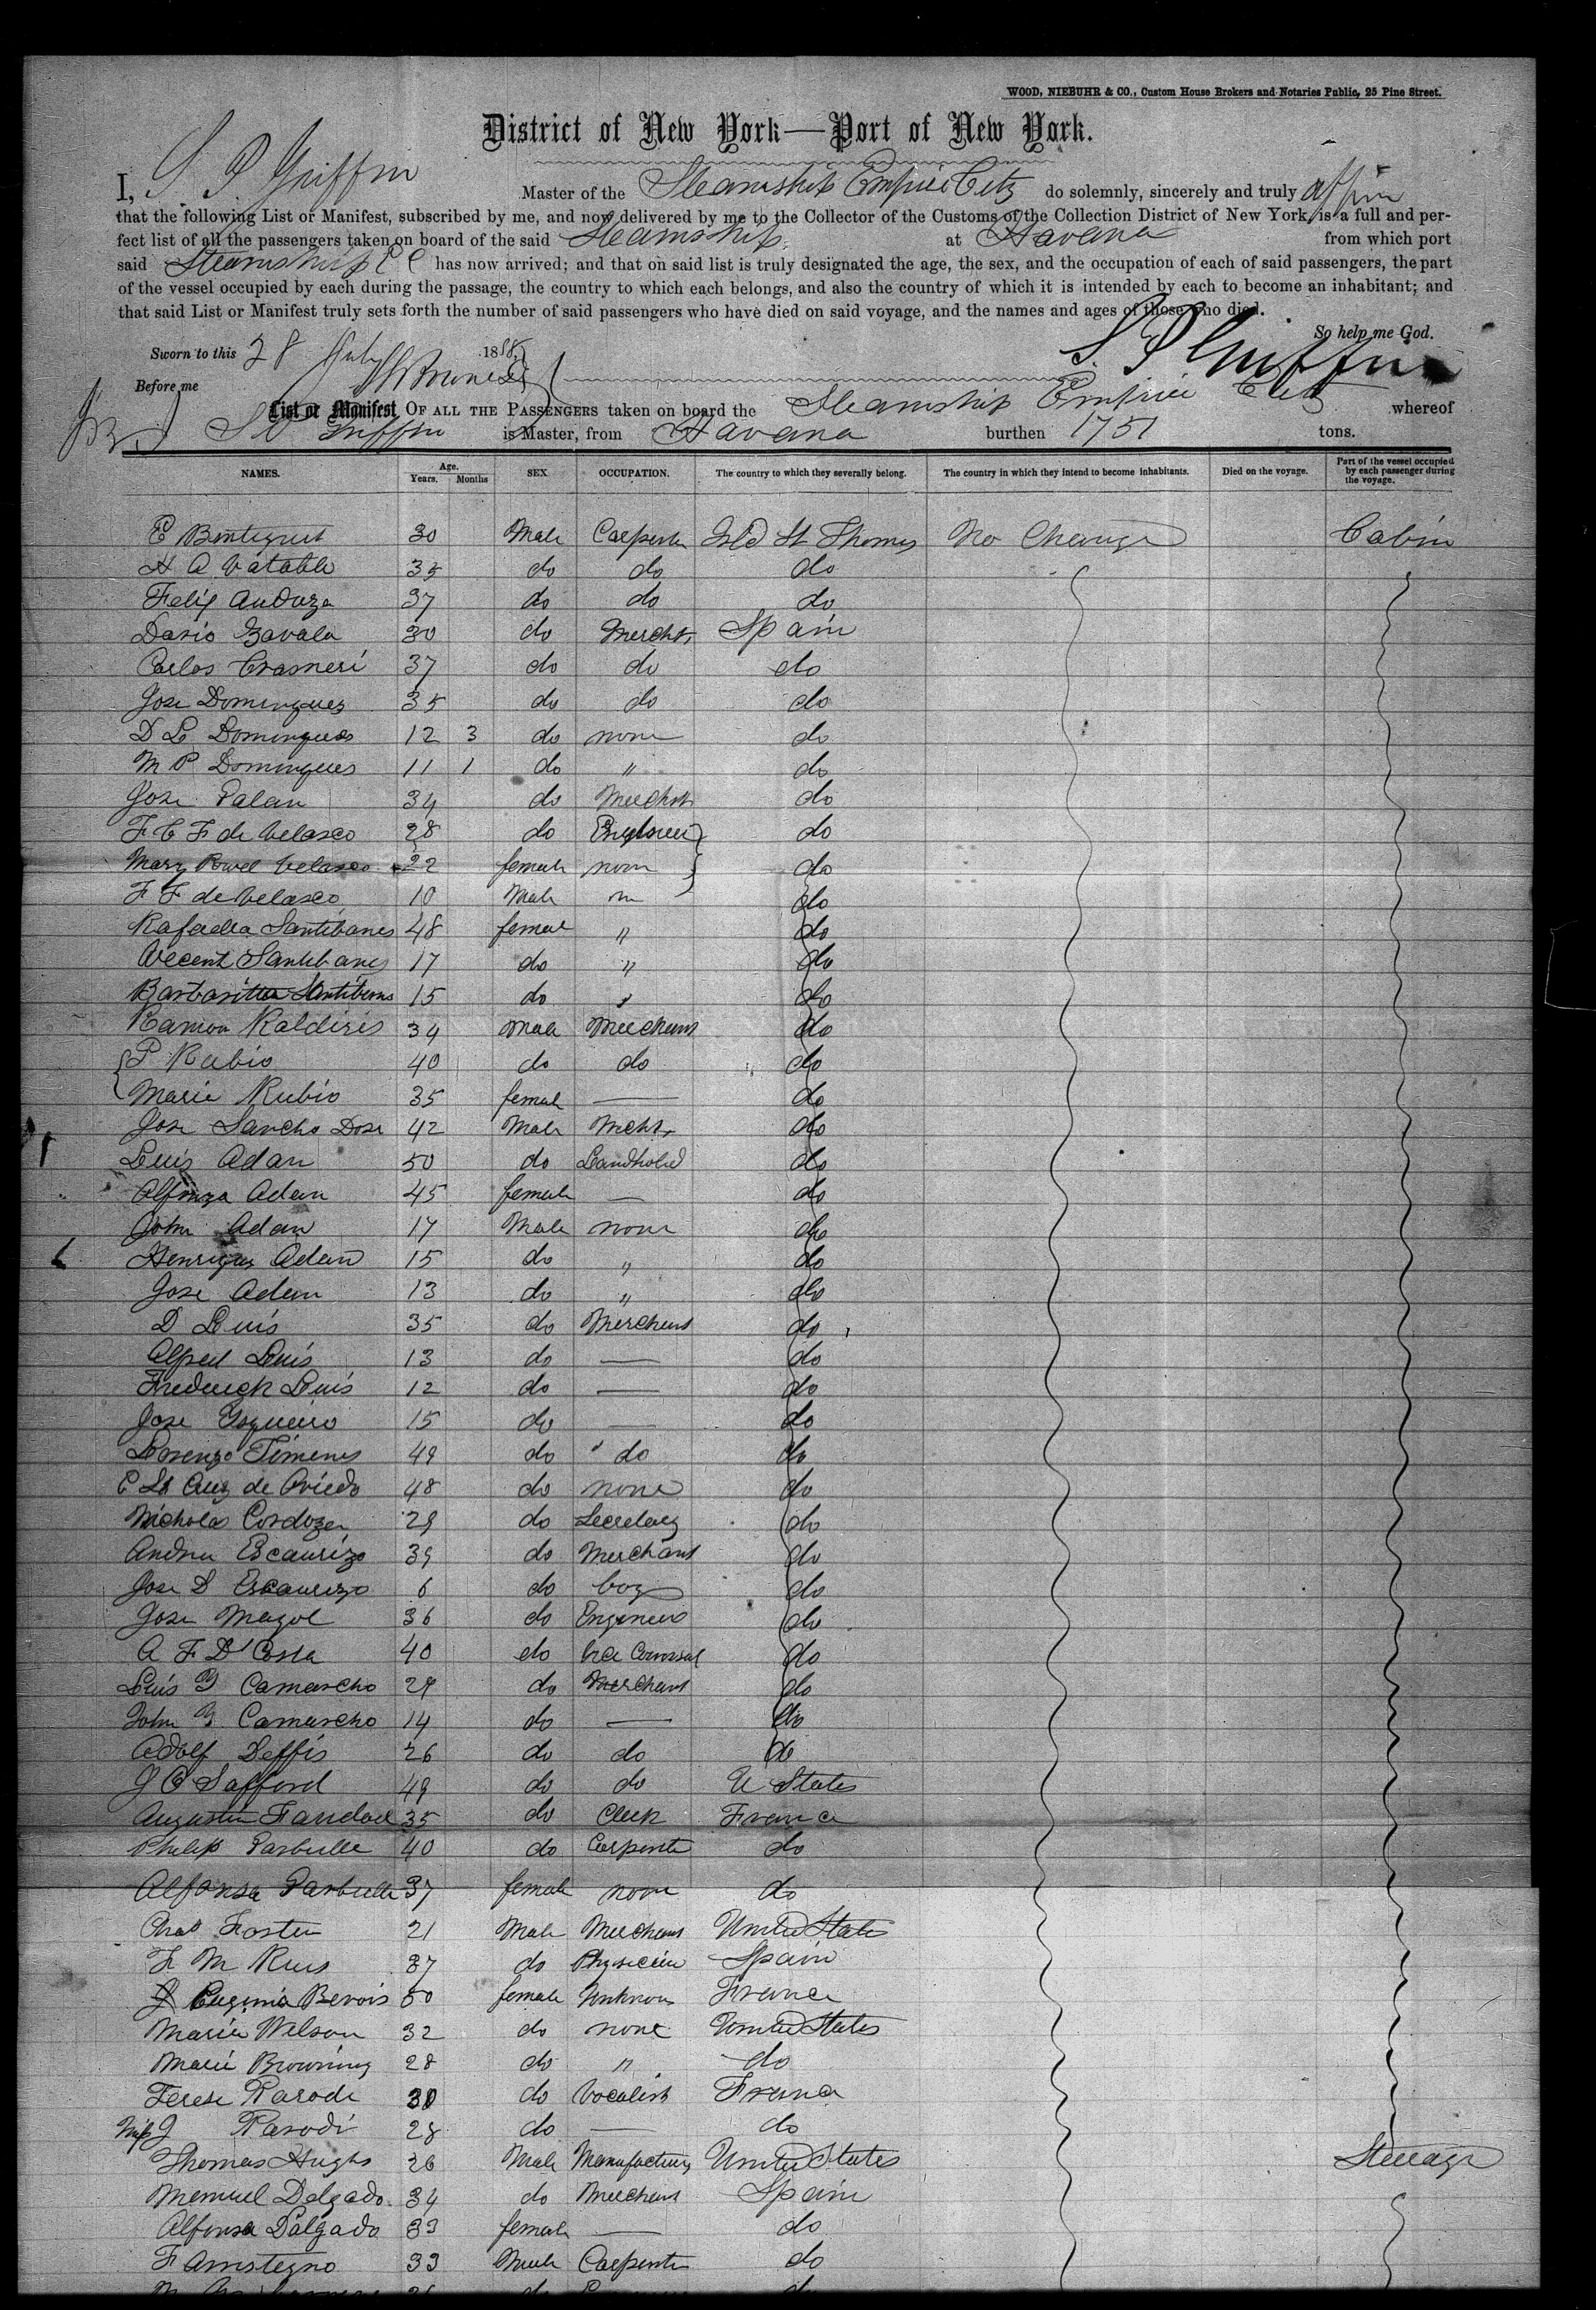 WOOD, NIEBUHR & CO., Custom House Brokers and Notaries Public, 25 Pine Street.
District of New York—Port of New York.
I, S. P. Griffin Master of the Steamship Empire City do solemnly, sincerely and truly affirm
that the following List or Manifest, subscribed by me, and now delivered by me to the Collector of the Customs of the Collection District of New York, is a full and per-
fect list of all the passengers taken on board of the said Steamship at Havana from which port
said Steamship E C has now arrived; and that on said list is truly designated the age, the sex, and the occupation of each of said passengers, the part
of the vessel occupied by each during the passage, the country to which each belongs, and also the country of which it is intended by each to become an inhabitant; and
that said List or Manifest truly sets forth the number of said passengers who have died on said voyage, and the names and ages of those who died.
So help me God.
Sworn to this 28 July 185 S. P. Griffin
Before me
List or Manifest OF ALL THE PASSENGERS taken on board the Steamship Empire City whereof
S P Griffin is Master, from Havana burthen 1751 tons.
NAMES. Age. Years. Months SEX OCCUPATION. The country to which they severally belong. The country in which they intend to become inhabitants. Died on the voyage. Part of the vessel occupied by each passenger during the voyage.
E 30 Male Carpenter Isld St Thomas No Change Cabin
H A Vatable 35 do do do
Felix Anduza 37 do do do
Dario Zavala 30 do Mercht Spain
Carlos 37 do do do
Jose Domingues 35 do do do
D L Domingues 12 3 do none do
M P Domingues 11 1 do " do
Jose Palan 34 do Mercht do
F C F de Velasco 28 do do
Mary Powel Velasco 22 female none do
F F de Velasco 10 Male do
Rafaella Santibanes 48 female " do
Santibanes 17 do " do
Barbaritta Santibanes 15 do " do
Ramon Kaldiris 34 Male Merchant do
P Rubio 40 do do do
Marie Rubio 35 female — do
Jose Sancho Dose 42 Male Mcht do
Luis Adan 50 do Landhold do
Alfonza Adan 45 female — do
John Adan 17 Male none do
Henriques Adan 15 do " do
Jose Adan 13 do " do
D Luis 35 do Merchant do
Alfred Luis 13 do — do
Frederick Luis 12 do — do
Jose 15 do — do
Lorenzo Timenes 49 do " do do
E Sta Cruz de Oviedo 48 do none do
Nicholas Cordozer 29 do Secretary do
Andreu Escaurizo 39 do Merchant do
Jose D Escaurizo 6 do boy do
Jose Mayol 36 do Engineer do
A F D'Costa 40 do do
Luis G Camascho 29 do Merchant do
John G Camascho 14 do — do
Adolf Deffis 26 do do do
J C Safford 49 do do U States
Augustin Fandoel 35 do Clerk France
Philip Parbulle 40 do Carpenter do
Alfonsa Parbulle 37 female none do
Chas Foster 21 Male Merchant United States
F M Ruis 37 do Physician Spain
J Eugenia Benois 50 female Unknown France
Maria Wilson 32 do none United States
Marie Browning 28 do " do
Terese Parodi 30 do Vocalist France
Miss J Parodi 28 do — do
Thomas Hughs 26 Male Manufacturer United States Steerage
Memuel Delgado 34 do Merchant Spain
Alfonsa Dalgado 33 female — do
F Amstegno 33 Male Carpenter do